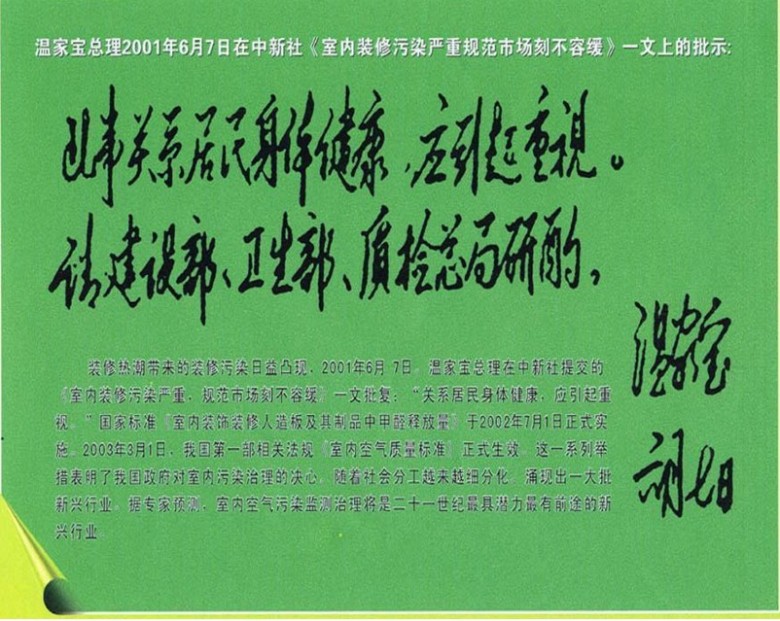 温家宝总理2001年6月7日在中新社《室内装修污染严重规范市场刻不容缓》一文上的批示:
此事关系居民身体健康,应引起重视。
请建设部、卫生部、质检总局研酌,
温家宝
六月七日
装修热潮带来的装修污染日益凸现，2001年6月 7日，温家宝总理在中新社提交的
《室内装修污染严重，规范市场刻不容缓》一文批复：“关系居民身体健康，应引起重
视。”国家标准《室内装饰装修人造板及其制品中甲醛释放量》于2002年7月1日正式实
施。2003年3月1日，我国第一部相关法规《室内空气质量标准》正式生效。这一系列举
措表明了我国政府对室内污染治理的决心。随着社会分工越来越细分化，涌现出一大批
新兴行业。据专家预测，室内空气污染监测治理将是二十一世纪最具潜力最有前途的新
兴行业。